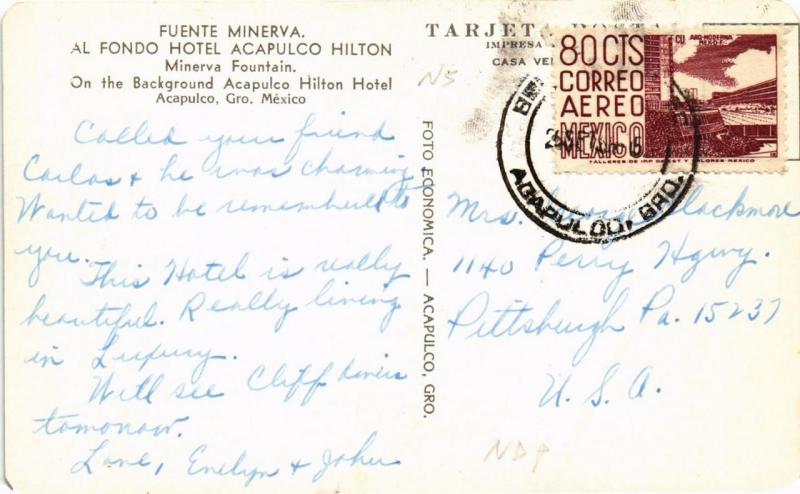 FUENTE MINERVA.
AL FONDO HOTEL ACAPULCO HILTON
Minerva Fountain.
On the Background Acapulco Hilton Hotel
Acapulco, Gro. México
Called your friend
Carlos + he was charming
Wanted to be remembered to
you.
This Hotel is really
beautiful. Really living
in Luxury.
Will see Cliff divers
tomorrow.
Love, Evelyn + John
FOTO ECONOMICA. — ACAPULCO, GRO.
TARJETA
IMPRESA
CASA
N5
80 CTS
CORREO
AEREO
MEXICO
CU ARQ-MODERNA
MEXICO D.F.
TALLERES DE IMP. DE EST. Y VALORES MEXICO
ACAPULCO, GRO.
Mrs. George Blackmore
1140 Perry Hgwy.
Pittsburgh Pa. 15237
U. S. A.
NDP